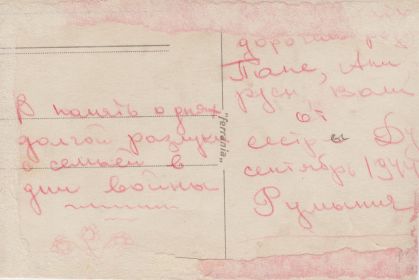 В память о днях
долгой разлуки
с семьей в
дни войны
"Ferrania"
Папе,
Вали
от
сестры
сентябрь 194
Румыния